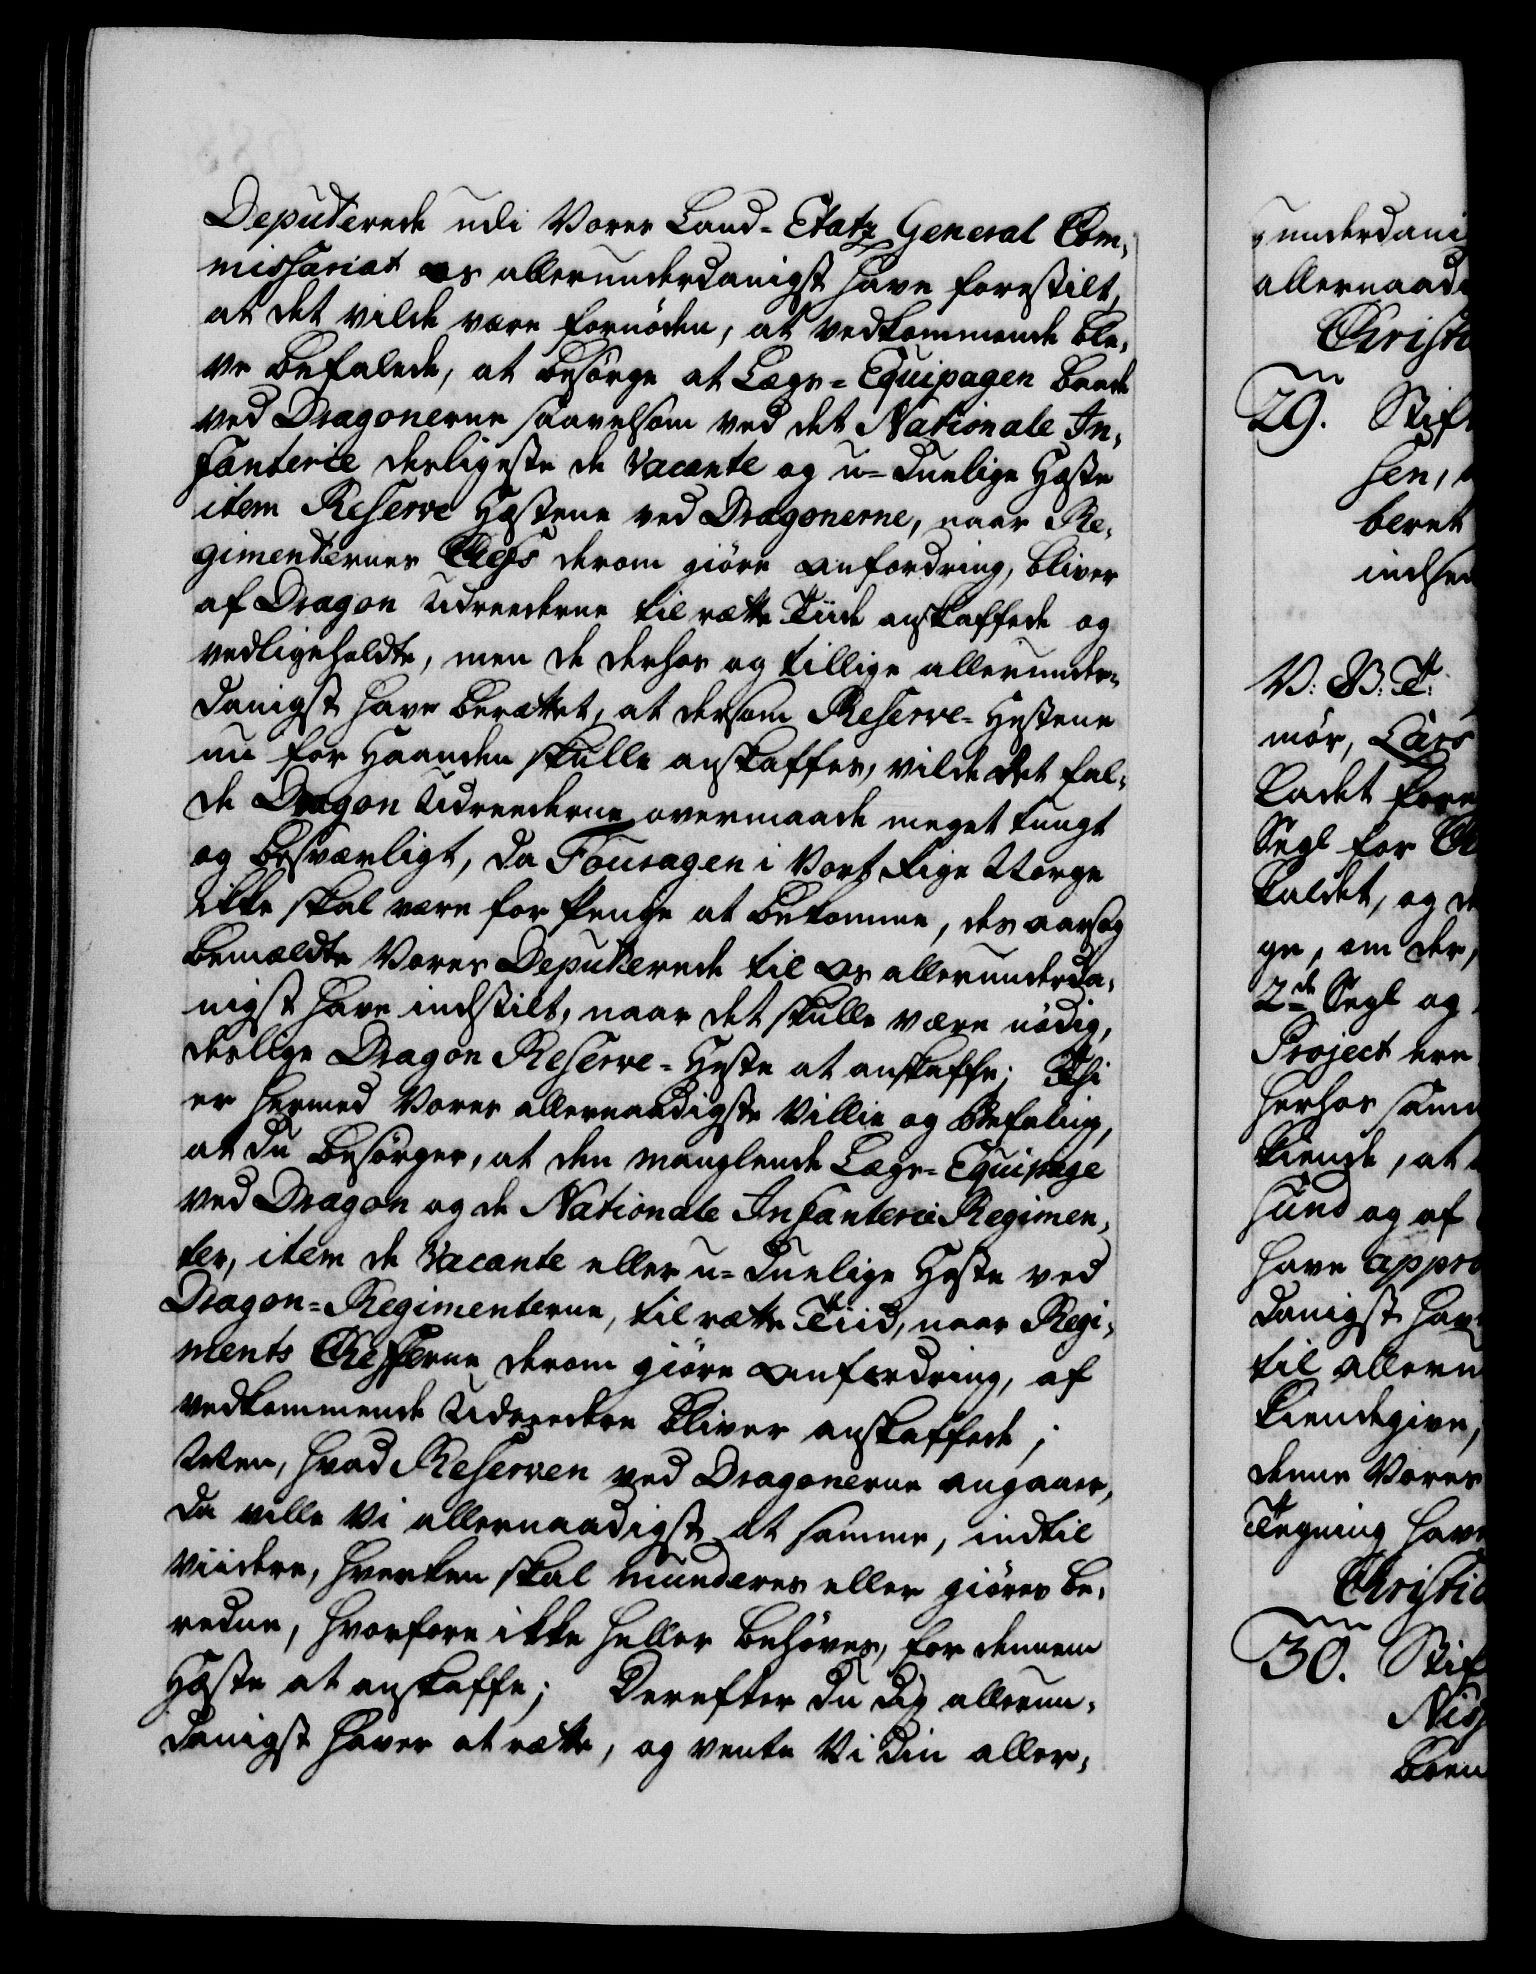 Deputerede udi Vores Land-Etatz General Com-
missariat os allerunderdanigst have forestilt,
at det vilde være fornöden, at vedkommende ble-
ve befalede, at besørge at Lægs-Equipagen baade
ved Dragonerne saavelsom ved det Nationale In-
fanterie desligeste de vacante og u-duelige Heste
item Reserve Hestene ved Dragonerne, naar Re-
gimenternes Chefs derom giøre anfordring, bliver
af Dragon Udreederne til rætte Tiide anskaffede og
vedligeholdte, men de derhos og tillige allerunder-
danigst have berættet, at dersom Reserve-Hestene
nu for Haanden skulle anskaffes, vilde det fal-
de Dragon Udreederne overmaade meget tungt
og besværligt, da Fouragen i Vort Rige Norge
ikke skal være for Penge at bekomme, des aarsag
bemældte Vores Deputerede til os allerunderda-
nigst have indstilt, naar det skulle være nödig,
deslige Dragon Reserve-Heste at anskaffe; Thi
er hermed Vores allernaadigste Villie og Befaling,
at du besørger, at den manglende Lægs-Equipage
ved Dragon og de Nationale Infanterie Regimen-
ter, item de vacante eller u-duelige Heste ved
Dragon-Regimenterne, til rætte Tiid, naar Regi-
ments Chefferne derom giøre anfordring, af
vedkommende Udreedere bliver anskaffede;
Men, hvad Reserven ved Dragonerne angaaer,
da ville Vi allernaadigst at samme, indtil
viidere, hverken skal munderes eller giøres be-
redne, hvorfore ikke heller behøves, for dennem
Heste at anskaffe; Derefter du dig allerun-
danigst haver at rætte, og vente Vi din aller-
underdani
allernaad
Christi
29. Stift
sen,
beret
indsen
V: G: T:
mör, Lars
Cadet fore
Segl for
kaldet, og de
ge, om der,
2de Segl og
Project ere
herhos samm
kiende, at
hund og af
have appro
danigst hav
til allern
kiendegive,
denne Vores
Tegning hav
Christia
30. Stif
Niss